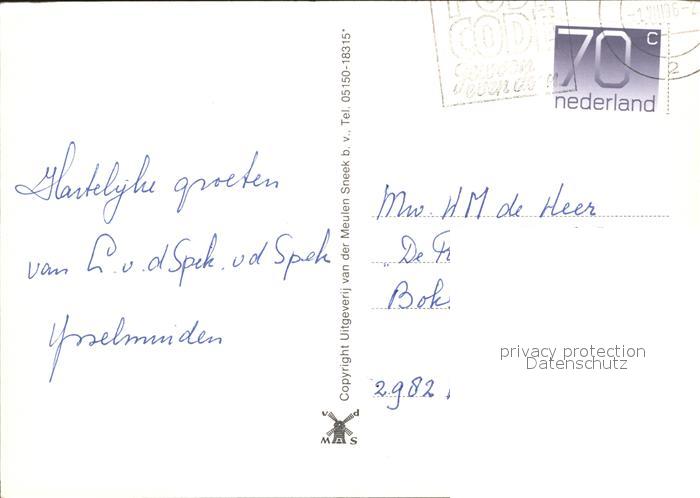 Hartelijke groeten
van L. v. d Spek. vd Spek
Ysselmuiden
Copyright Uitgeverij van der Meulen Sneek b. v., Tel. 05150-18315*
vd
MAS
CODE
70 c
nederland
Mw. H M de Heer
"De
Bok
privacy protection
Datenschutz
2982